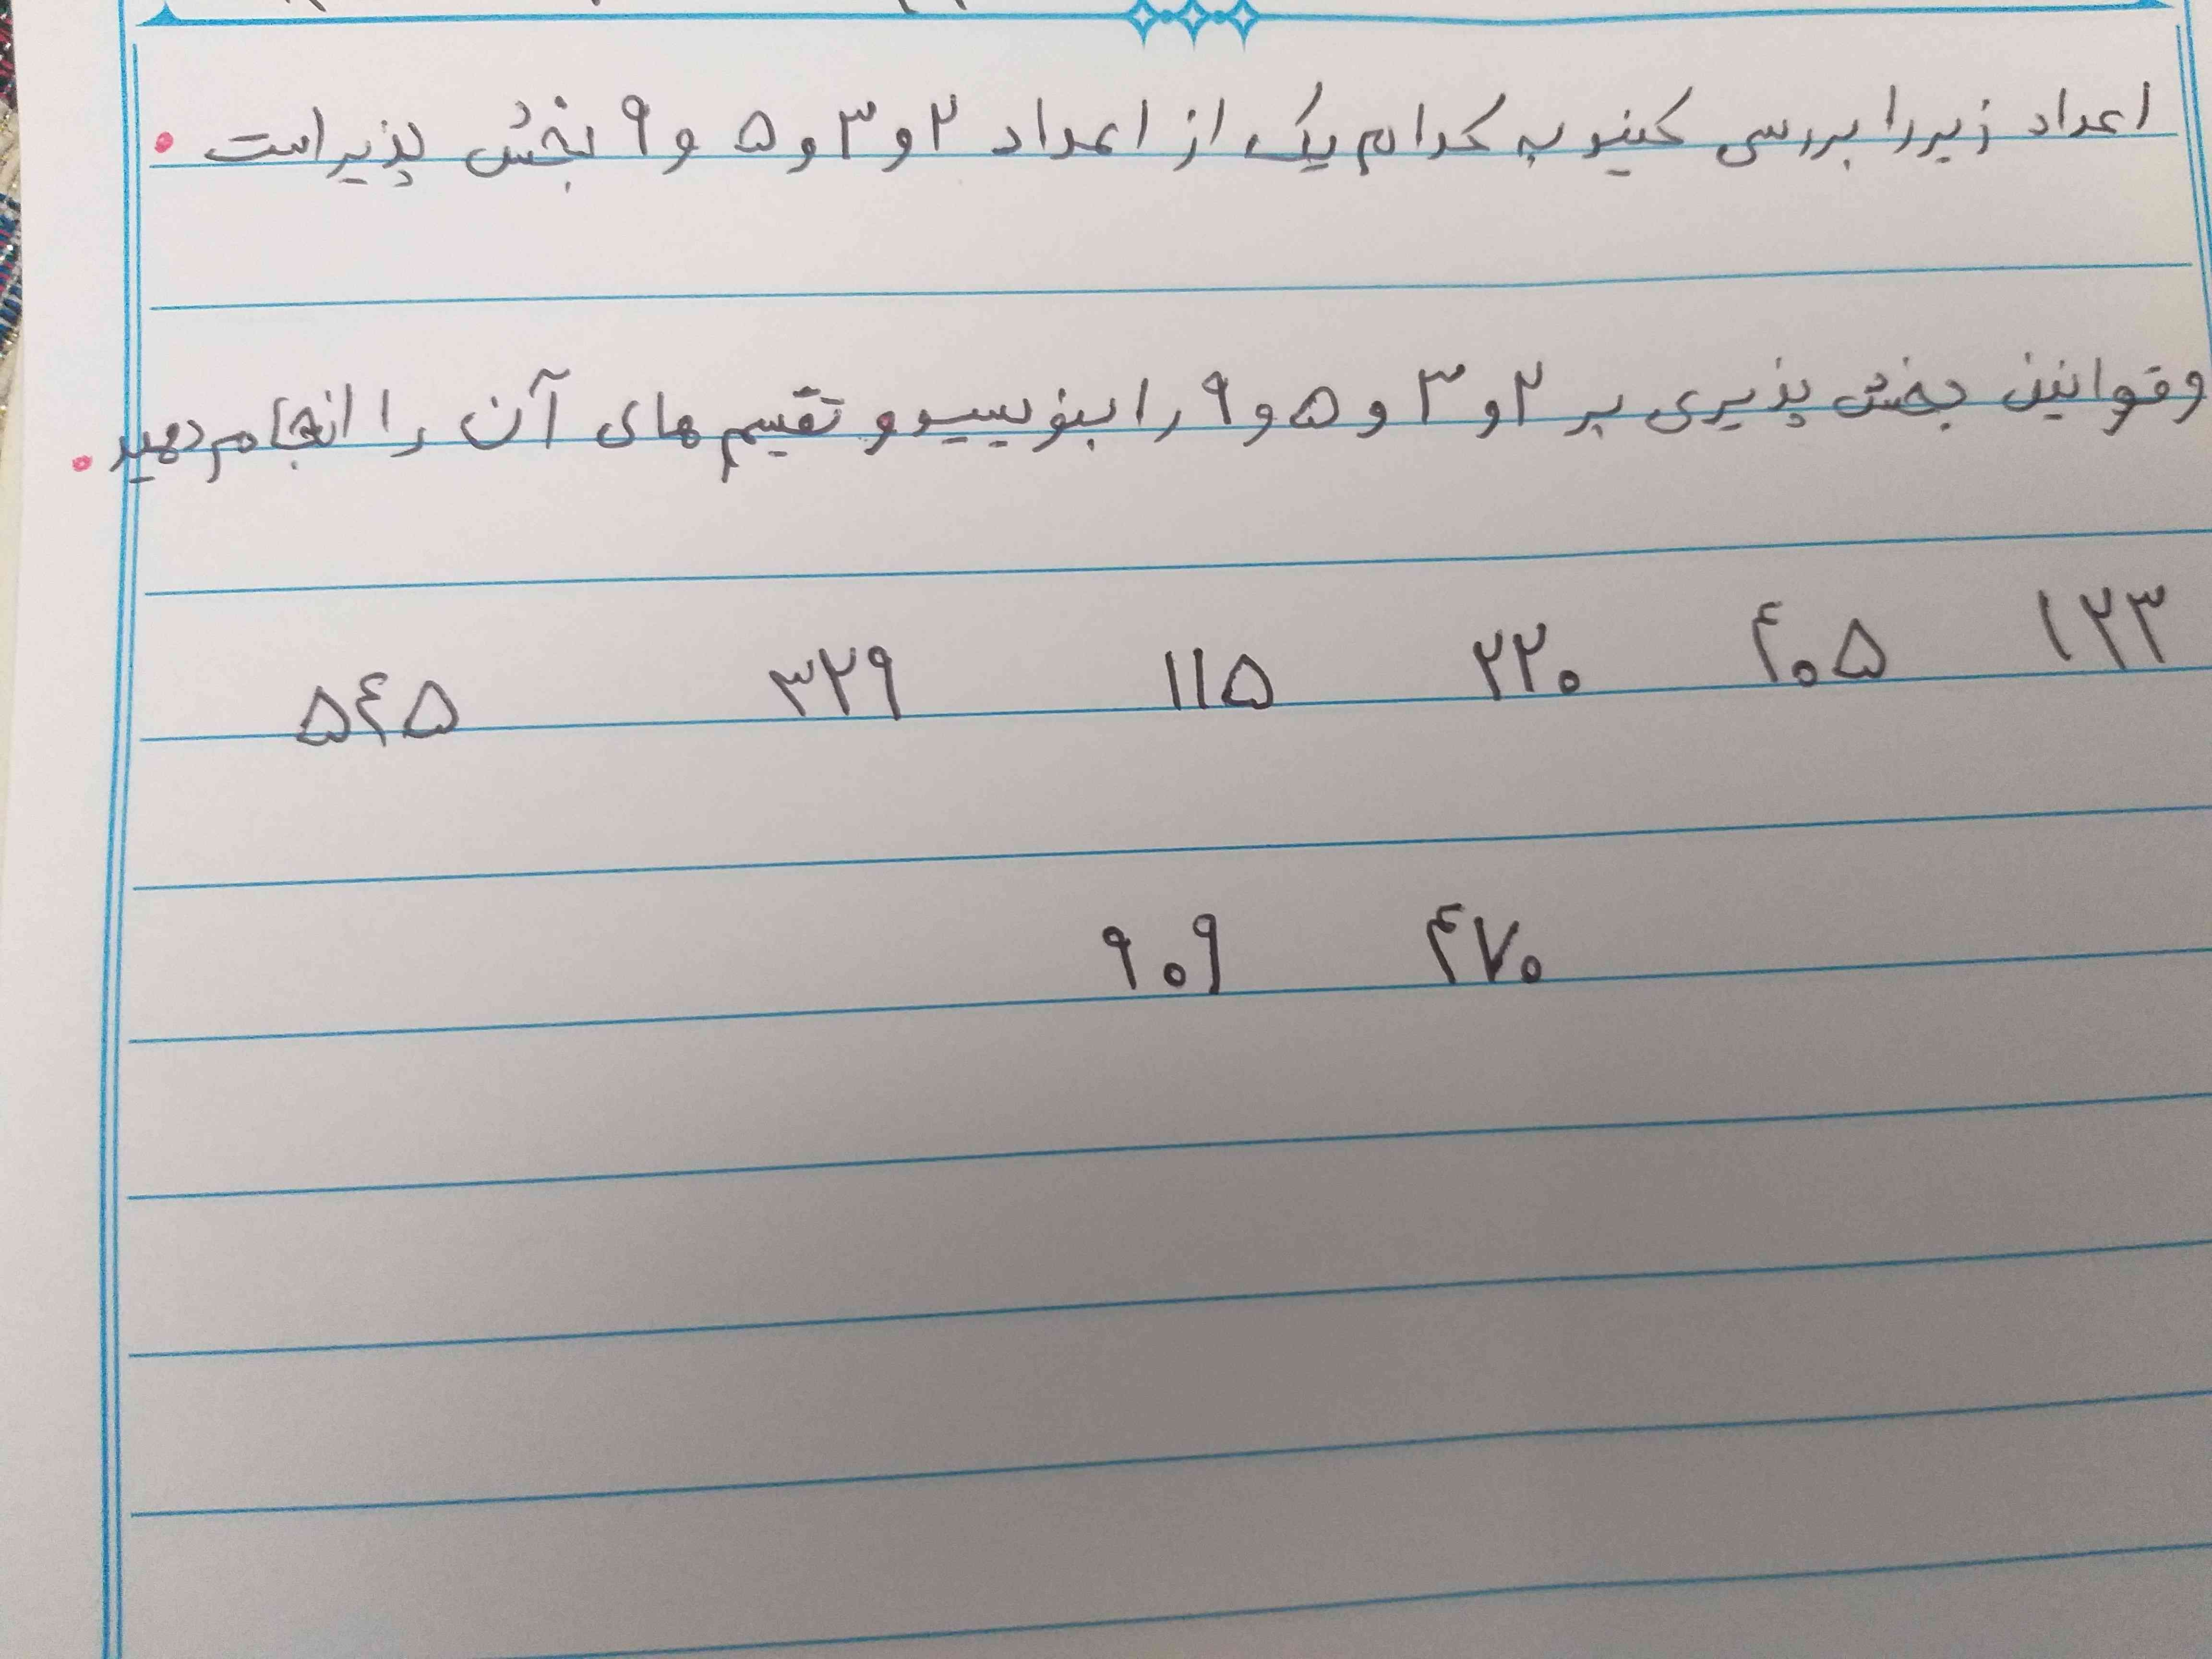 اعداد زیر را بررسی کنیو به کدام یک از اعداد ۲ و ۳ و ۵ و ۹ بخش پذیر است .
و قوانین بخش پذیری بر ۲ و ۳ و ۵ و ۹ را بنویسیو و تقسیم های آن را انجام دهید .
۱۲۳ ۴۰۵ ۲۲۰ ۱۱۵ ۳۲۹ ۵۴۵
۴۷۰ ۹۰۹